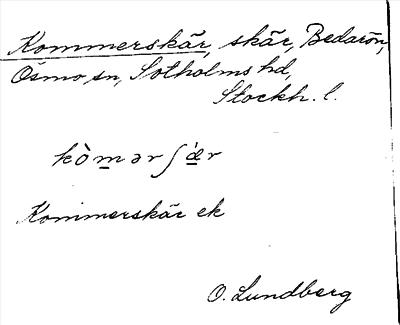 Kommerskär, skär, Bedarön,
Ösmo sn, Sotholms hd,
Stockh. l.
kòm̲ərʃǽ̲r
Kommerskär ek
O. Lundberg